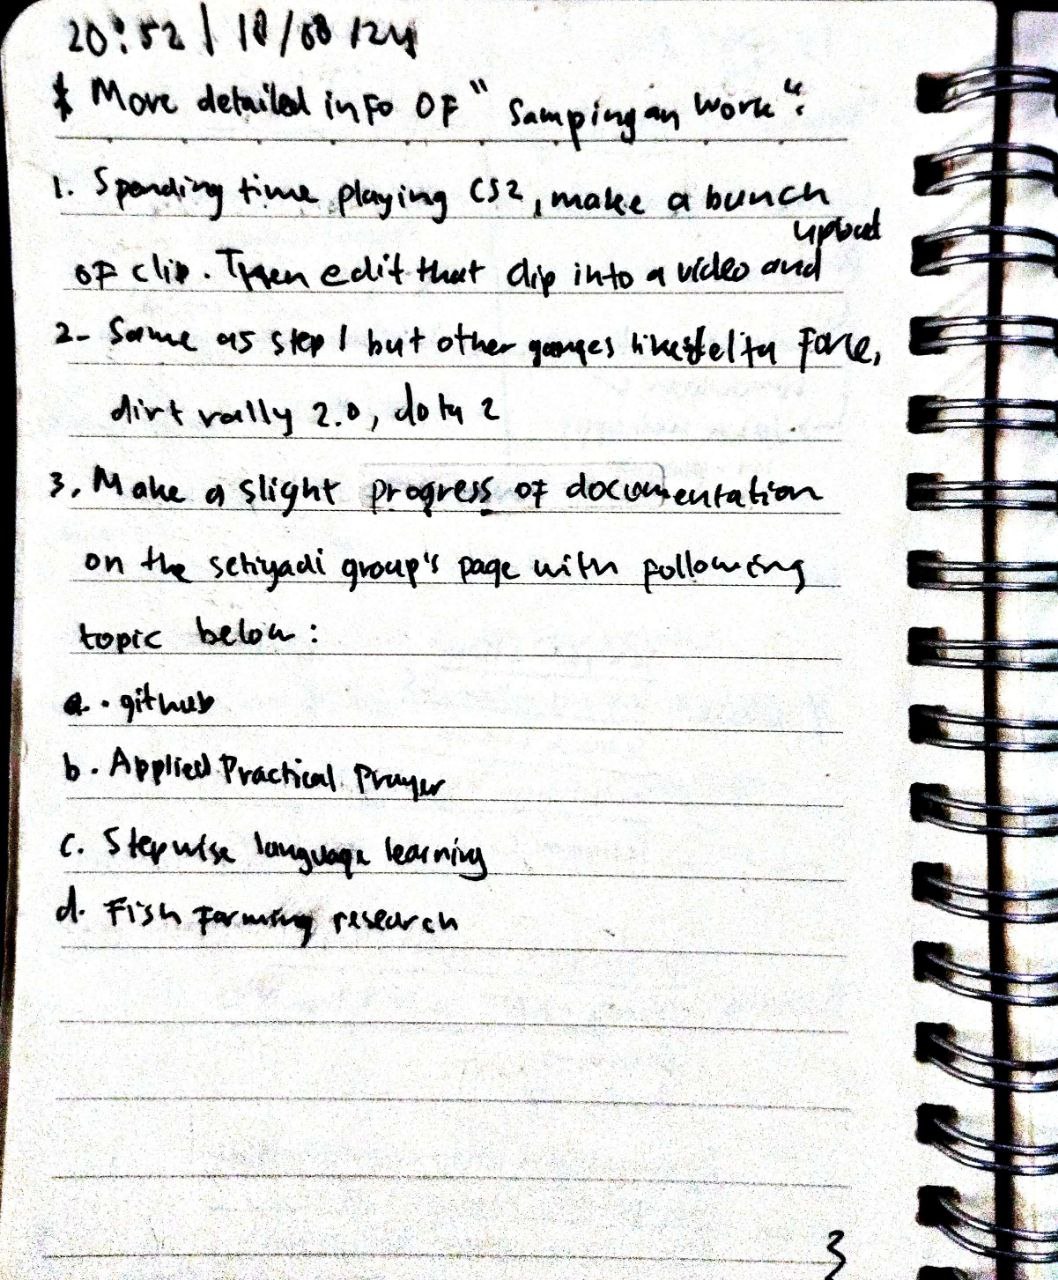 20:52 | 18/08/24
* More detailed info OF "Sampingan Work":
1. Spending time playing CS2, make a bunch
upload
of clip. Then edit that clip into a video and
2- Same as step 1 but other games like delta Force,
dirt rally 2.0, dota 2
3. Make a slight progress of documentation
on the setiyadi group's page with following
topic below:
a. github
b. Applied Practical Prayer
c. Stepwise language learning
d. Fish Farming research
3